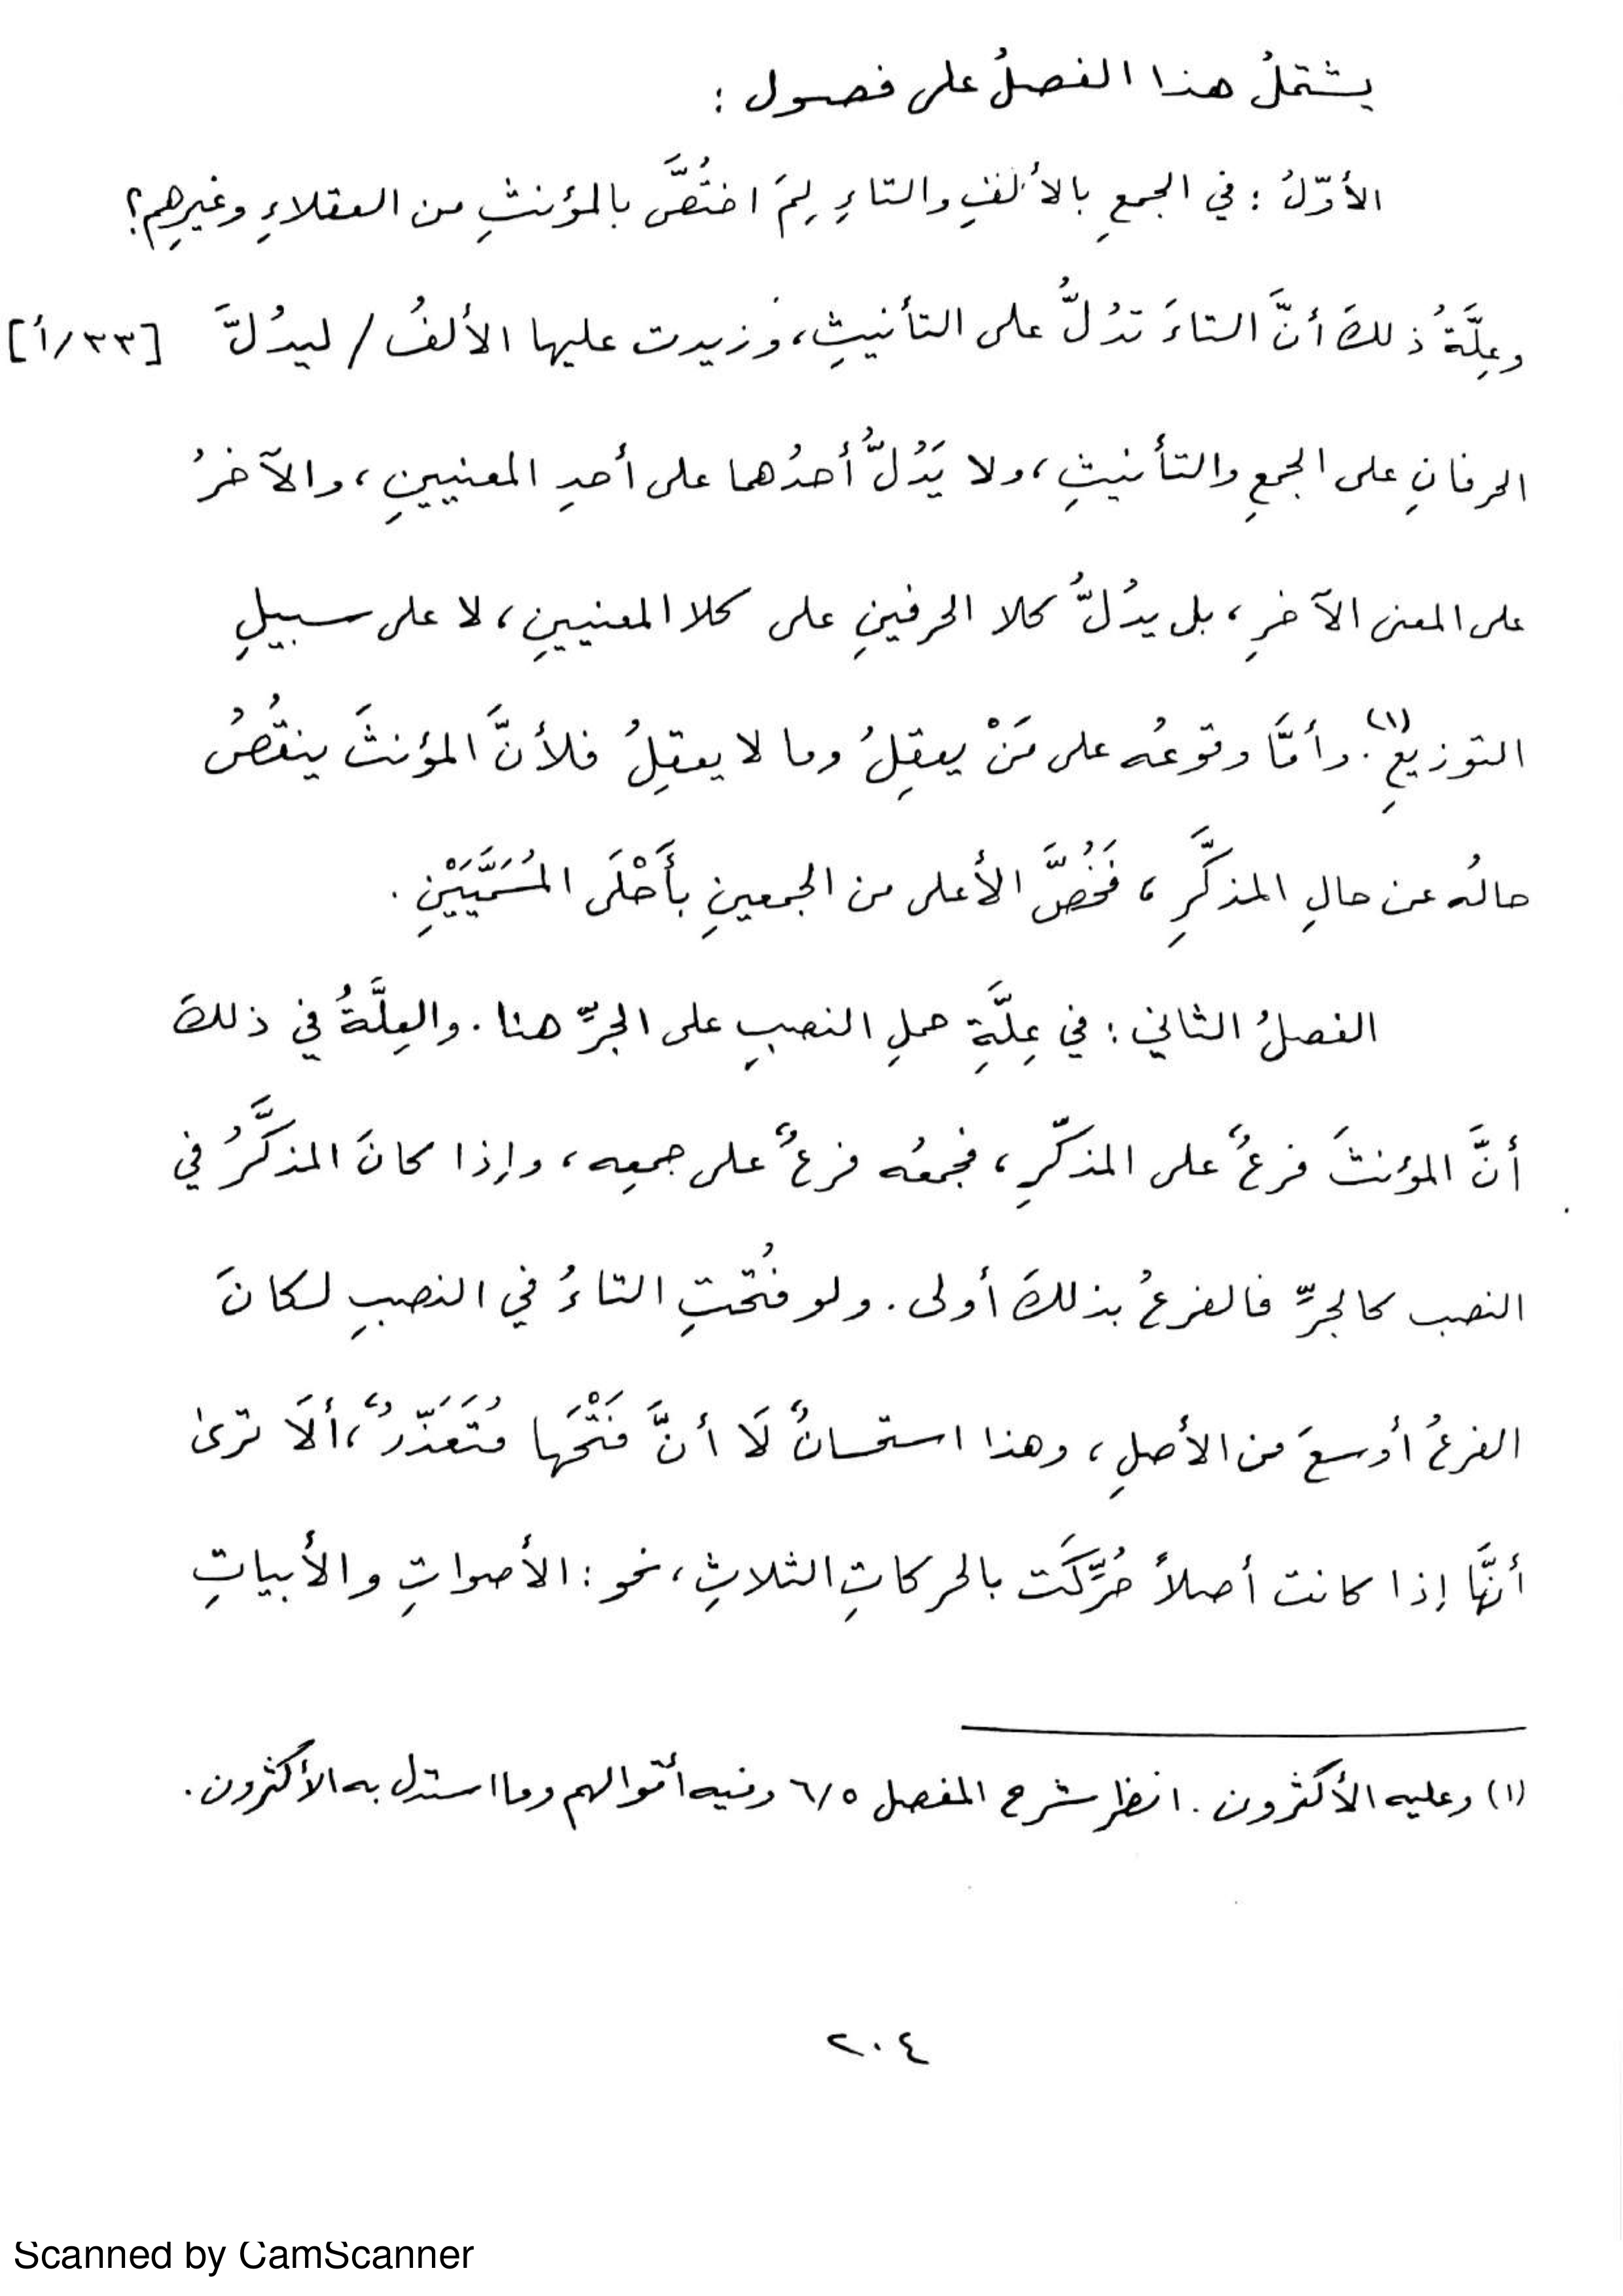 يشتملُ هذا الفصلُ على فصول :
الأوّلُ : في الجمعِ بالألفِ والتاءِ لِمَ اختُصَّ بالمؤنثِ من العقلاءِ وغيرِهِم؟
وعِلَّةُ ذلكَ أنَّ التاءَ تدُلُّ على التأنيثِ، وزيدت عليها الألفُ / ليدُلَّ [٣٣/أ]
الحرفانِ على الجمعِ والتأنيثِ، ولا يَدُلُّ أحدُهما على أحدِ المعنيينِ، والآخرُ
على المعنى الآخرِ، بل يدُلُّ كلا الحرفينِ على كلا المعنيينِ، لا على سبيلِ
التوزيعِ(١). وأمَّا وقوعُه على مَنْ يعقِلُ وما لا يعقِلُ فلأنَّ المؤنثَ ينقُصُ
حالُه عن حالِ المذكَّرِ، فَخُصَّ الأعلى من الجمعينِ بأَحْلَى المُسَمَّيَيْنِ .
الفصلُ الثاني : في عِلَّةِ حملِ النصبِ على الجرِّ هنا . والعِلَّةُ في ذلكَ
أنَّ المؤنثَ فرعٌ على المذكّرِ، فجمعُه فرعٌ على جمعِه، وإذا كانَ المذكَّرُ في
النصب كالجرِّ فالفرعُ بذلكَ أولى . ولو فُتحتِ التاءُ في النصبِ لكانَ
الفرعُ أوسعَ من الأصلِ، وهذا استحسانٌ لَا أنَّ فَتْحَها مُتَعَذّرٌ، ألَا ترىٰ
أنهَّا إذا كانت أصلاً حُرِّكَت بالحركاتِ الثلاثِ، نحو : الأصواتِ والأبياتِ
(١) وعليه الأكثرون . انظر شرح المفصل ٦/٥ وفيه أقوالهم وما استدل به الأكثرون .
٢٠٤
Scanned by CamScanner